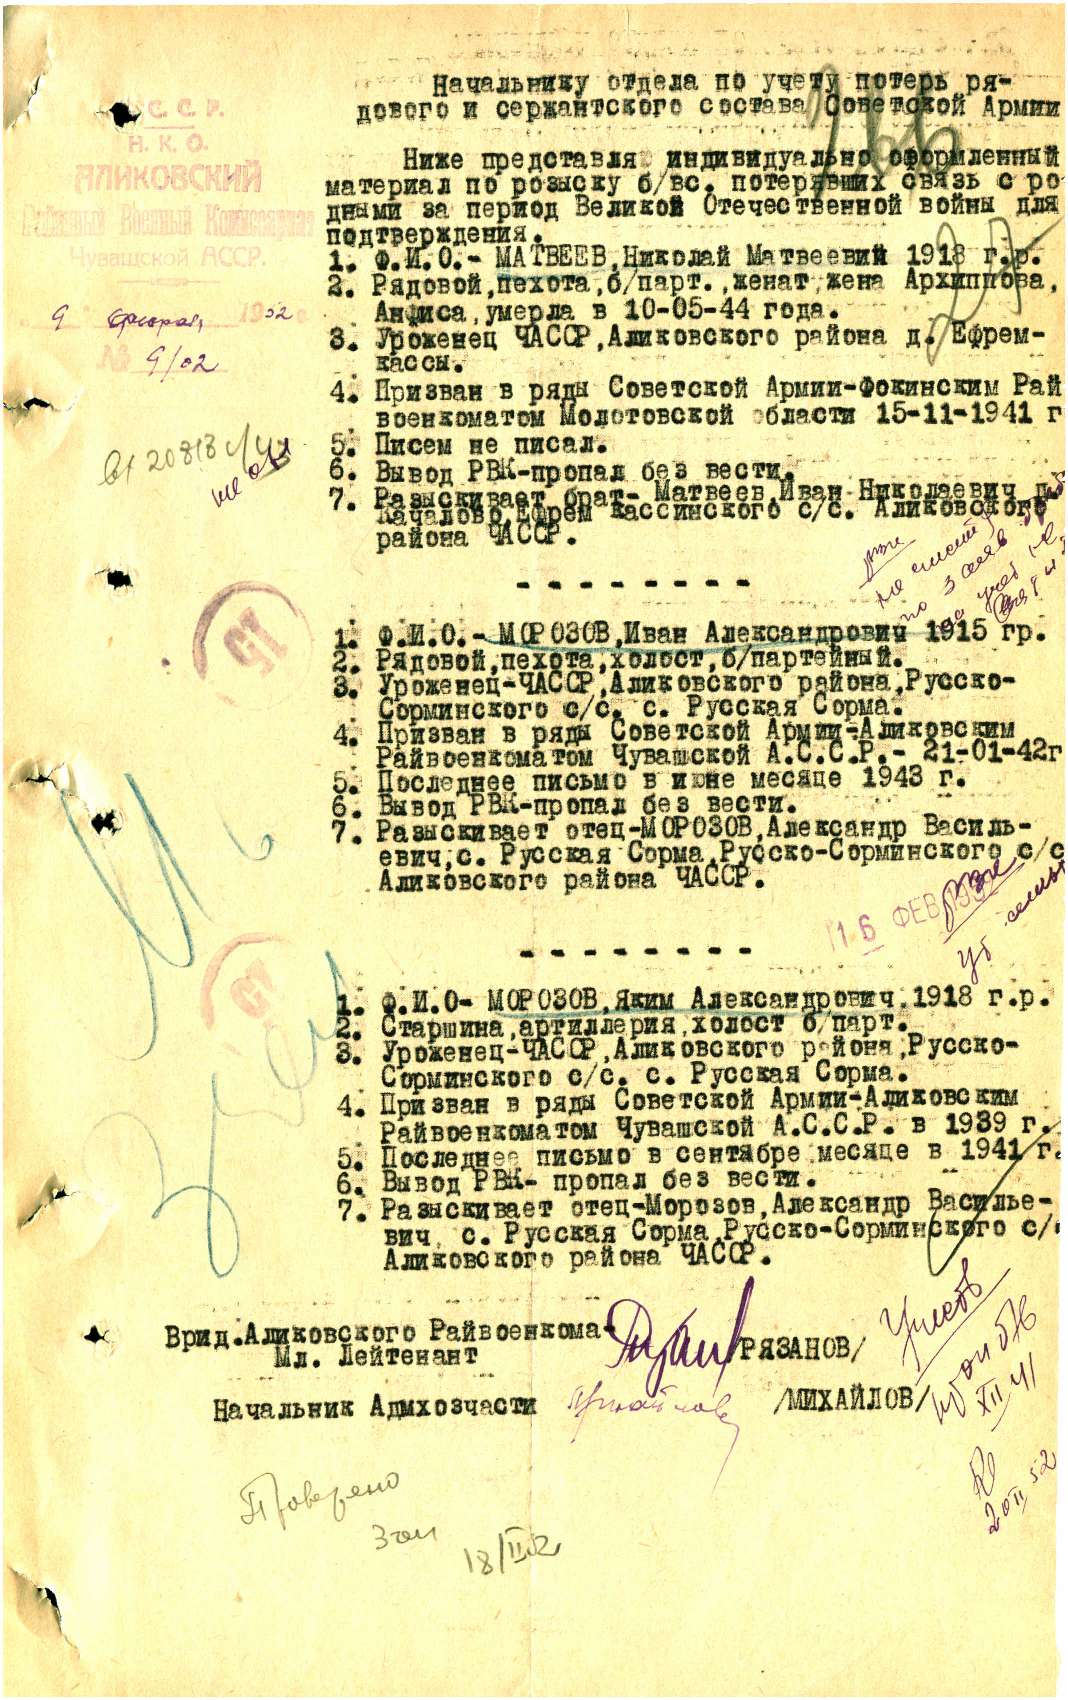 Начальнику отдела по учету потерь ря-
дового и сержантского состава Советской Армии
С.С.Р.
Н.К.О.
АЛИКОВСКИЙ
Районный Военный Комиссариат
Чувашской АССР.
9 февраля 1952 г
№ 9/02
Ниже представля индивидуально оформленный
материал по розыску б/вс. потерявших связь с ро
дными за период Великой Отечественной войны для
подтверждения.
1. Ф.И.О.- МАТВЕЕВ,Николай Матвеевий 1918 г.р.
2. Рядовой,пехота,б/парт.,женат,жена Архиппова,
Анфиса,умерла в 10-05-44 года.
3. Уроженец ЧАССР,Аликовского района д. Ефрем-
кассы.
4. Призван в ряды Советской Армии-Фокинским Рай
военкоматом Молотовской области 15-11-1941 г
5. Писем не писал.
6. Вывод РВК-пропал без вести.
7. Разыскивает брат- Матвеев,Иван Николаевич д.
Качалово,Ефрем Кассинского с/с. Аликовского
района ЧАССР.
- - - - - - - -
1. Ф.И.О.- МОРОЗОВ,Иван Александрович 1915 гр.
2. Рядовой,пехота,холост,б/партейный.
3. Уроженец-ЧАССР,Аликовского района,Русско-
Сорминского с/с. с. Русская Сорма.
4. Призван в ряды Советской Армии-Аликовским
Райвоенкоматом Чувашской А.С.С.Р.- 21-01-42г
5. Последнее письмо в июне месяце 1943 г.
6. Вывод РВК-пропал без вести.
7. Разыскивает отец-МОРОЗОВ,Александр Василь-
евич,с. Русская Сорма,Русско-Сорминского с/с
Аликовского района ЧАССР.
16 ФЕВ
- - - - - - - -
1. Ф.И.О- МОРОЗОВ,Яким Александрович.1918 г.р.
2. Старшина,артиллерия,холост б/парт.
3. Уроженец-ЧАССР,Аликовского района,Русско-
Сорминского с/с. с. Русская Сорма.
4. Призван в ряды Советской Армии-Аликовским
Райвоенкоматом Чувашской А.С.С.Р. в 1939 г.
5. Последнее письмо в сентябре месяце в 1941 г.
6. Вывод РВК- пропал без вести.
7. Разыскивает отец-Морозов,Александр Василье-
вич, с. Русская Сорма,Русско-Сорминского с/с
Аликовского района ЧАССР.
Врид.Аликовского Райвоенкома-
Мл. Лейтенант
РЯЗАНОВ/
Начальник Адмхозчасти
/МИХАЙЛОВ/
XII 41
20 II 52
Проверено
18/II 52